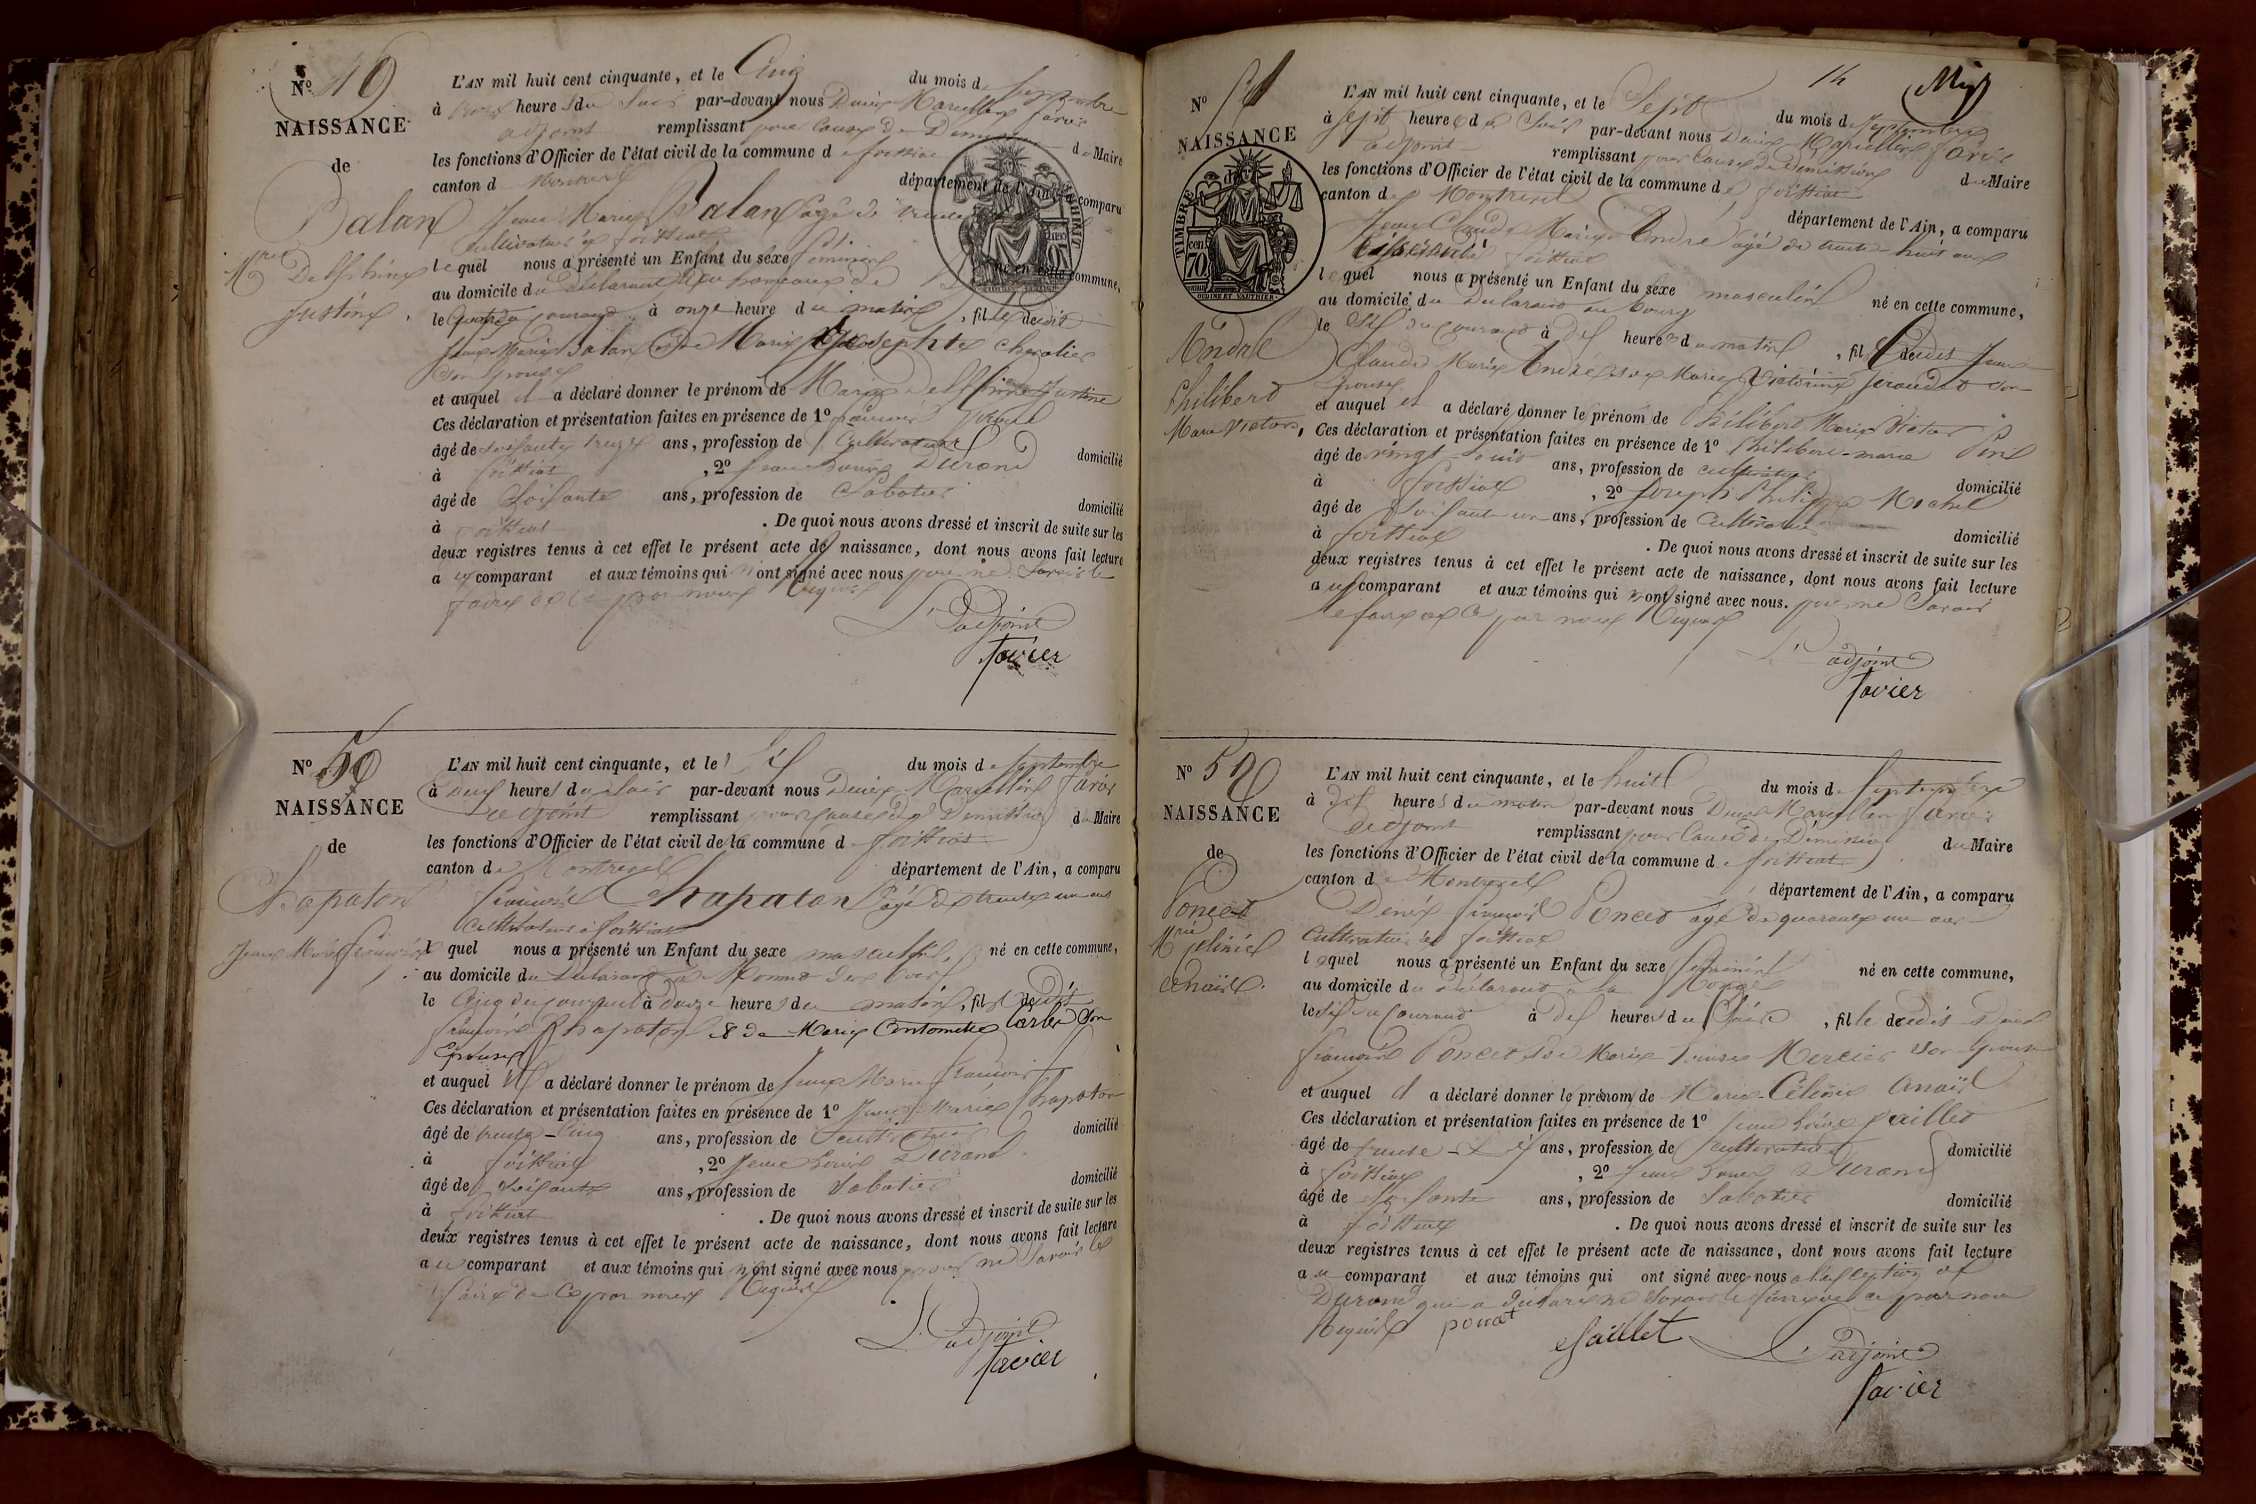 No 49
NAISSANCE
de
Balan
Mrie Delphine
Justine.
L'AN mil huit cent cinquante, et le Cinq du mois de Septembre
à trois heures du Soir par-devant nous Denis Marcellin favier
adjoint remplissant pour Cause de Demission du Maire
les fonctions d'Officier de l'état civil de la commune de foissiat
canton de Montrevel département de l'Ain, a comparu
Jean Marie Balan agé de trente
Cultivateur à foissiat
lequel nous a présenté un Enfant du sexe feminin né en cette commune,
au domicile du Déclarant au hameau de
le quatre du courant à onze heure du matin, fille dudit
Jean Marie Balan et de Marie Josephte Chevalier
son épouse
et auquel il a déclaré donner le prénom de Marie Delphine Justine
Ces déclaration et présentation faites en présence de 1o
âgé de soixante treize ans, profession de Cultivateur domicilié
à foissiat, 2o Jean Louis Durand
âgé de Soixante ans, profession de Sabotier domicilié
à foissiat. De quoi nous avons dressé et inscrit de suite sur les
deux registres tenus à cet effet le présent acte de naissance, dont nous avons fait lecture
au comparant et aux témoins qui n'ont signé avec nous pour ne Savoir le
faire de ce par nous Requis
L'adjoint
favier
No 50
NAISSANCE
de
Chapaton
Jean Marie françois
L'AN mil huit cent cinquante, et le Six du mois de Septembre
à deux heures du Soir par-devant nous Denis Marcellin favier
adjoint remplissant pour Cause de Demission du Maire
les fonctions d'Officier de l'état civil de la commune de foissiat
canton de Montrevel département de l'Ain, a comparu
françois Chapaton agé de trente un ans
Cultivateur à foissiat
lequel nous a présenté un Enfant du sexe masculin né en cette commune,
au domicile du Déclarant
le Cinq du courant à onze heures du matin, fils dudit
françois Chapaton & de Marie Antoinette Carlin Son
Epouse
et auquel il a déclaré donner le prénom de Jean Marie françois
Ces déclaration et présentation faites en présence de 1o Jean Marie Chapaton
âgé de trente-Cinq ans, profession de Cultivateur domicilié
à foissiat, 2o Jean Louis Durand
âgé de Soixante ans, profession de Sabotier domicilié
à foissiat. De quoi nous avons dressé et inscrit de suite sur les
deux registres tenus à cet effet le présent acte de naissance, dont nous avons fait lecture
au comparant et aux témoins qui n'ont signé avec nous pour ne Savoir le
faire de Ce par nous Requis
L'adjoint
favier
14
No 51
NAISSANCE
de
TIMBRE
cen 70
OUDINE ET VAUTHIER
André
Philibert
Marie Victor,
L'AN mil huit cent cinquante, et le Sept du mois de Septembre
à Sept heures du Soir par-devant nous Denis Marcellin favier
adjoint remplissant pour Cause de Demission du Maire
les fonctions d'Officier de l'état civil de la commune de foissiat
canton de Montrevel département de l'Ain, a comparu
Jean Claude Marie André agé de trente huit ans
foissiat
lequel nous a présenté un Enfant du sexe masculin né en cette commune,
au domicile du Déclarant au bourg
le Six du courant à dix heures du matin, fils dudit Jean
Claude Marie André & de Marie Victorine Giraudet son
épouse
et auquel il a déclaré donner le prénom de Philibert Marie Victor
Ces déclaration et présentation faites en présence de 1o Philibert-marie
âgé de vingt huit ans, profession de cultivateur domicilié
à foissiat, 2o Joseph Philippe Michel
âgé de Soixante un ans, profession de Cultivateur domicilié
à foissiat. De quoi nous avons dressé et inscrit de suite sur les
deux registres tenus à cet effet le présent acte de naissance, dont nous avons fait lecture
au comparant et aux témoins qui n'ont signé avec nous. pour ne Savoir
le faire de Ce par nous Requis
L'adjoint
favier
No 52
NAISSANCE
de
Poncet
Mrie Célinie
Anaïs.
L'AN mil huit cent cinquante, et le huit du mois de Septembre
à dix heures du matin par-devant nous Denis Marcellin favier
adjoint remplissant pour Cause de Demission du Maire
les fonctions d'Officier de l'état civil de la commune de foissiat
canton de Montrevel département de l'Ain, a comparu
Denis françois Poncet agé de quarante un ans
Cultivateur à foissiat
lequel nous a présenté un Enfant du sexe feminin né en cette commune,
au domicile du Déclarant à la
le Six du Courant à dix heures du Soir, fille dudit Denis
françois Poncet & de Marie Louise Mercier son épouse
et auquel il a déclaré donner le prénom de Marie-Célinie Anaïs
Ces déclaration et présentation faites en présence de 1o Jean Louis Paillet
âgé de trente-Six ans, profession de cultivateur domicilié
à foissiat, 2o Jean Louis Durand
âgé de Soixante ans, profession de Sabotier domicilié
à foissiat. De quoi nous avons dressé et inscrit de suite sur les
deux registres tenus à cet effet le présent acte de naissance, dont nous avons fait lecture
au comparant et aux témoins qui ont signé avec nous à l'exception de
Durand qui a déclaré ne Savoir le faire de ce par nous
Requis
L'adjoint
favier